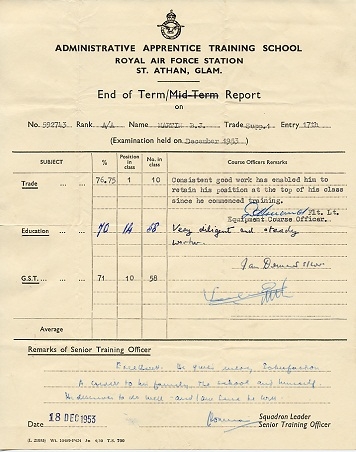 ADMINISTRATIVE APPRENTICE TRAINING SCHOOL
ROYAL AIR FORCE STATION
ST. ATHAN, GLAM.
End of Term/Mid-Term Report
on
No. 592743 Rank A/A Name B.J. Trade Supp.1 Entry 17th
(Examination held on December 1953)
SUBJECT % Position in class No. in class Course Officers Remarks
Trade ... ... 76.75 1 10 Consistent good work has enabled him to
retain his position at the top of his class
since he commenced training.
Flt. Lt.
Equipment Course Officer.
Education ... 70 14 58 Very diligent and steady
worker.
G.S.T. ... ... 71 10 58
Average
Remarks of Senior Training Officer
Excellent. He gives every satisfaction
A credit to his family the school and himself.
He deserves to do well and I am sure he will.
Date 18 DEC 1953
Squadron Leader
Senior Training Officer